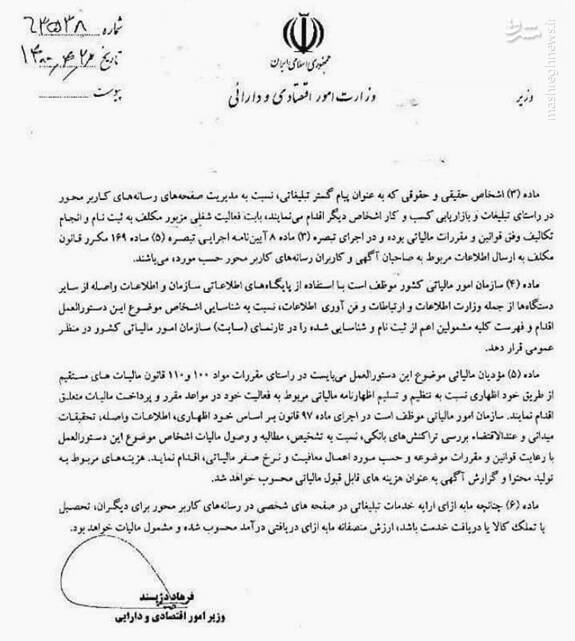 شماره ۶۳۵۳۸
تاریخ ۱۴۰۰/۴/۲
پیوست
جمهوری اسلامی ایران
وزارت امور اقتصادی و دارائی
وزیر
مشرق
mashreghnews.ir
ماده (۳) اشخاص حقیقی و حقوقی که به عنوان پیام گستر تبلیغاتی، نسبت به مدیریت صفحه‌های رسانه‌های کاربر محور
در راستای تبلیغات و بازاریابی کسب و کار اشخاص دیگر اقدام می‌نمایند، بابت فعالیت شغلی مزبور مکلف به ثبت نام و انجام
تکالیف وفق قوانین و مقررات مالیاتی بوده و در اجرای تبصره (۳) ماده ۸ آیین‌نامه اجرایی تبصره (۵) ماده ۱۶۹ مکرر قانون
مکلف به ارسال اطلاعات مربوط به صاحبان آگهی و کاربران رسانه‌های کاربر محور حسب مورد، می‌باشند.
ماده (۴) سازمان امور مالیاتی کشور موظف است با استفاده از پایگاه‌های اطلاعاتی سازمان و اطلاعات واصله از سایر
دستگاه‌ها از جمله وزارت اطلاعات و ارتباطات و فن آوری اطلاعات، نسبت به شناسایی اشخاص موضوع این دستورالعمل
اقدام و فهرست کلیه مشمولین اعم از ثبت نام و شناسایی شده را در تارنمای (سایت) سازمان امور مالیاتی کشور در منظر
عمومی قرار دهد.
ماده (۵) مؤدیان مالیاتی موضوع این دستورالعمل می‌بایست در راستای مقررات مواد ۱۰۰ و ۱۱۰ قانون مالیات های مستقیم
از طریق خود اظهاری نسبت به تنظیم و تسلیم اظهارنامه مالیاتی مربوط به فعالیت خود در مواعد مقرر و پرداخت مالیات متعلق
اقدام نمایند. سازمان امور مالیاتی موظف است در اجرای ماده ۹۷ قانون بر اساس خود اظهاری، اطلاعات واصله، تحقیقات
میدانی و عندالاقتضاء بررسی تراکنش‌های بانکی، نسبت به تشخیص، مطالبه و وصول مالیات اشخاص موضوع این دستورالعمل
با رعایت قوانین و مقررات موضوعه و حسب مورد اعمال معافیت و نرخ صفر مالیاتی، اقدام نماید. هزینه‌های مربوط به
تولید محتوا و گزارش آگهی به عنوان هزینه های قابل قبول مالیاتی محسوب خواهد شد.
ماده (۶) چنانچه مابه ازای ارایه خدمات تبلیغاتی در صفحه های شخصی در رسانه‌های کاربر محور برای دیگران، تحصیل
یا تملک کالا یا دریافت خدمت باشد، ارزش منصفانه مابه ازای دریافتی درآمد محسوب شده و مشمول مالیات خواهد بود.
فرهاد دژپسند
وزیر امور اقتصادی و دارایی